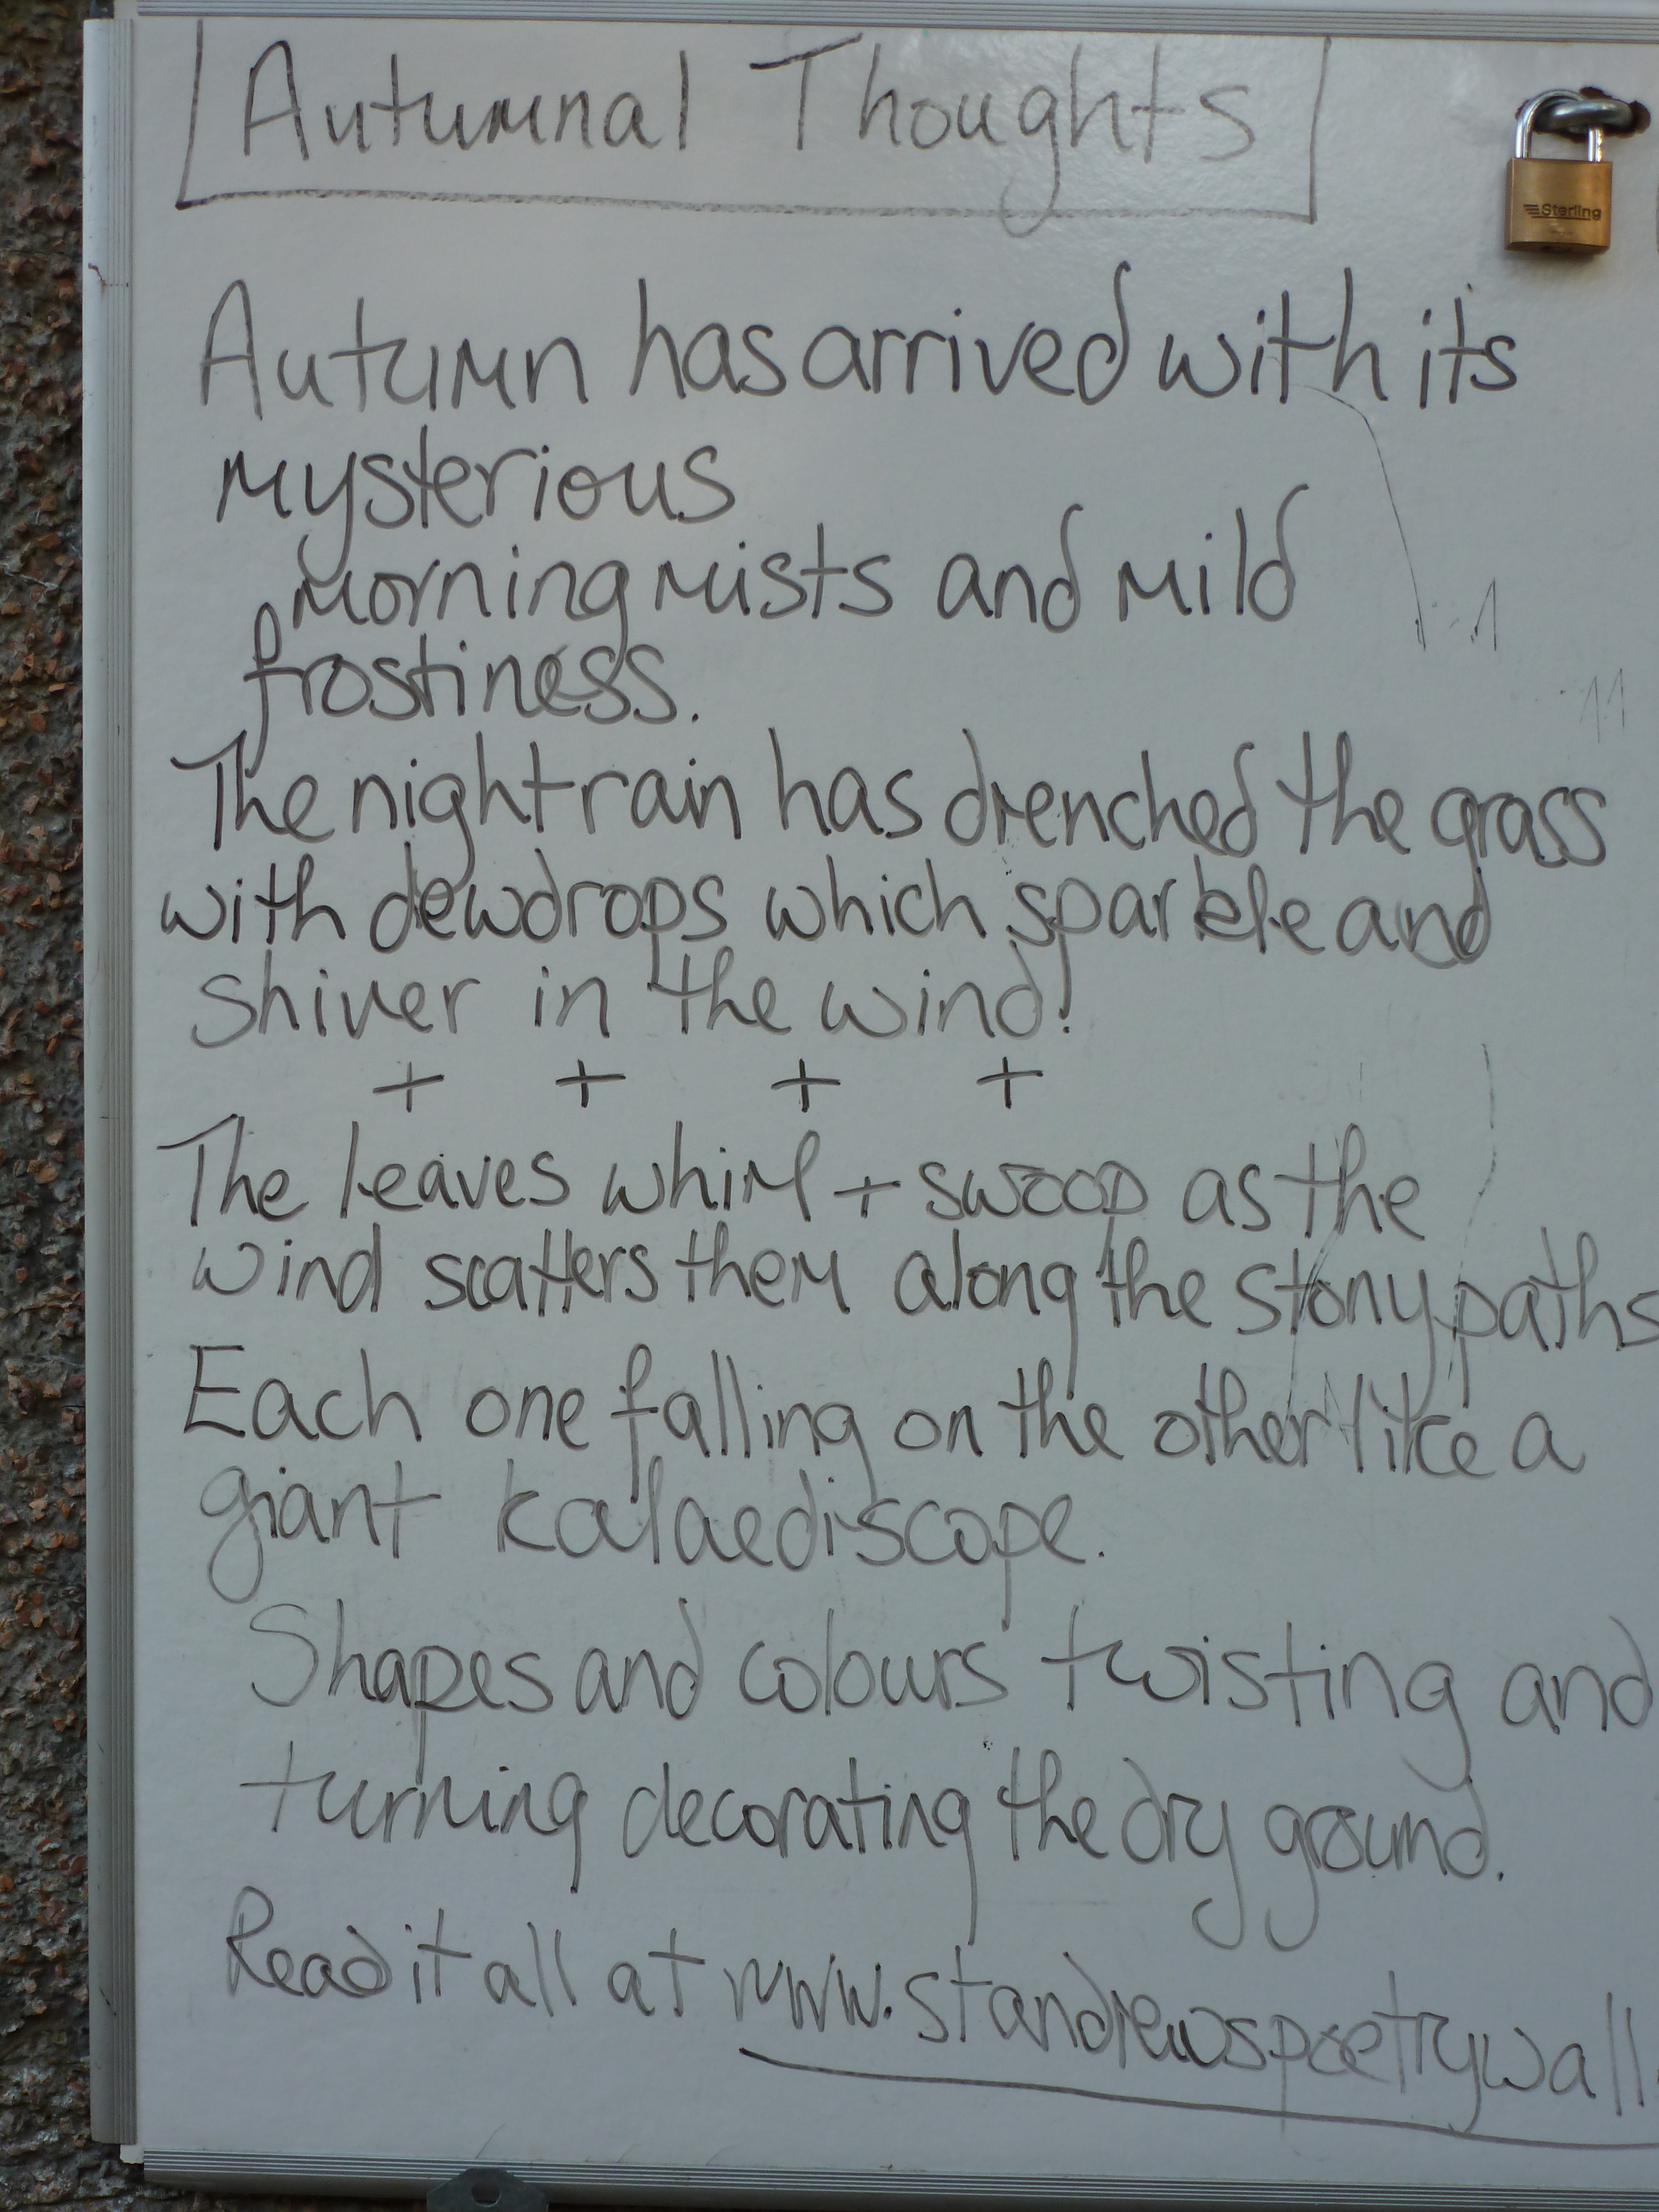 Autumnal Thoughts
Sterling
Autumn has arrived with its
mysterious
morning mists and mild
frostiness.
The night rain has drenched the grass
with dewdrops which sparkle and
shiver in the wind!
+ + + +
The leaves whirl + swoop as the
wind scatters them along the stony paths
Each one falling on the other like a
giant kalaediscope.
Shapes and colours twisting and
turning decorating the dry ground.
Read it all at www.standrewspoetrywall